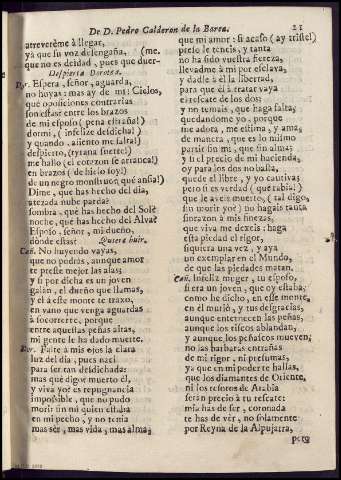 De D. Pedro Calderon de la Barca. 21
atreverème à llegar,
yà que su voz desengaña, (me.
que no es deidad, pues que duer-
Despierta Dorotea.
Dor. Espera, señor, aguarda,
no huyas: mas ay de mi! Cielos,
què oposiciones contrarias
son estas? entre los brazos
de mi esposo (pena estraña!)
dormi, (infelize desdicha!)
y quando, aliento me falta!
despierto, (tyrana suerte!)
me hallo (el corazon se arranca!)
en brazos (de hielo soy!)
de un negro monstruo; què ansia!)
Dime, que has hecho del dia,
atezada nube parda?
sombra, què has hecho del Sol?
noche, què has hecho del Alva?
Esposo, señor, mi dueño,
dònde estàs? Quiere huir.
Cañ. No huyendo vayas,
que no podràs, aunque amor
te preste mejor las alas;
y si por dicha es un joven
galàn, el dueño que llamas,
y èl à este monte te traxo,
en vano que venga aguardas
à socorrerte, porque
entre aquestas peñas altas,
mi gente le ha dado muerte.
Dor. Falte à mis ojos la clara
luz del dia, pues naci
para ser tan desdichada:
mas què digo? muerto èl,
y viva yo? es repugnancia
impossible, que no pudo
morir sin mi quien estaba
en mi pecho, y no tenia
mas sèr, mas vida, mas alma,
que mi amor: si acaso (ay triste!)
preso le teneis, y tanta
no ha sido vuestra fiereza,
llevadme à mi por esclava,
y dadle à èl la libertad,
para que èl à tratar vaya
el rescate de los dos;
y no temais, que haga falta,
quedandome yo, porque
me adora, me estima, y ama,
de manera, que es lo mismo
partir sin mi, que sin alma;
y si el precio de mi hacienda,
oy para los dos no basta,
quede èl libre, y yo cautiva;
pero si es verdad (què rabia!)
que le aveis muerto, (tal digo,
sin morir yo!) no hagais tanta
sinrazon à mis finezas,
que viva me dexeis: haga
esta piedad el rigor,
siquiera una vez, y aya
un exemplar en el Mundo,
de que las piedades matan.
Cañ. Infeliz muger, tu esposo,
si era un joven, que oy estaba,
como he dicho, en este monte,
en èl muriò, y tus desgracias,
aunque enternecen las peñas,
aunque los riscos ablandan,
y aunque los peñascos mueven,
no las barbaras entrañas
de mi rigor, ni presumas,
ya que en mi poder te hallas,
que los diamantes de Oriente,
ni los tesoros de Arabia
seràn precio à tu rescate:
mia has de ser, coronada
te has de ver, no solamente
por Reyna de la Alpujarra,
pero